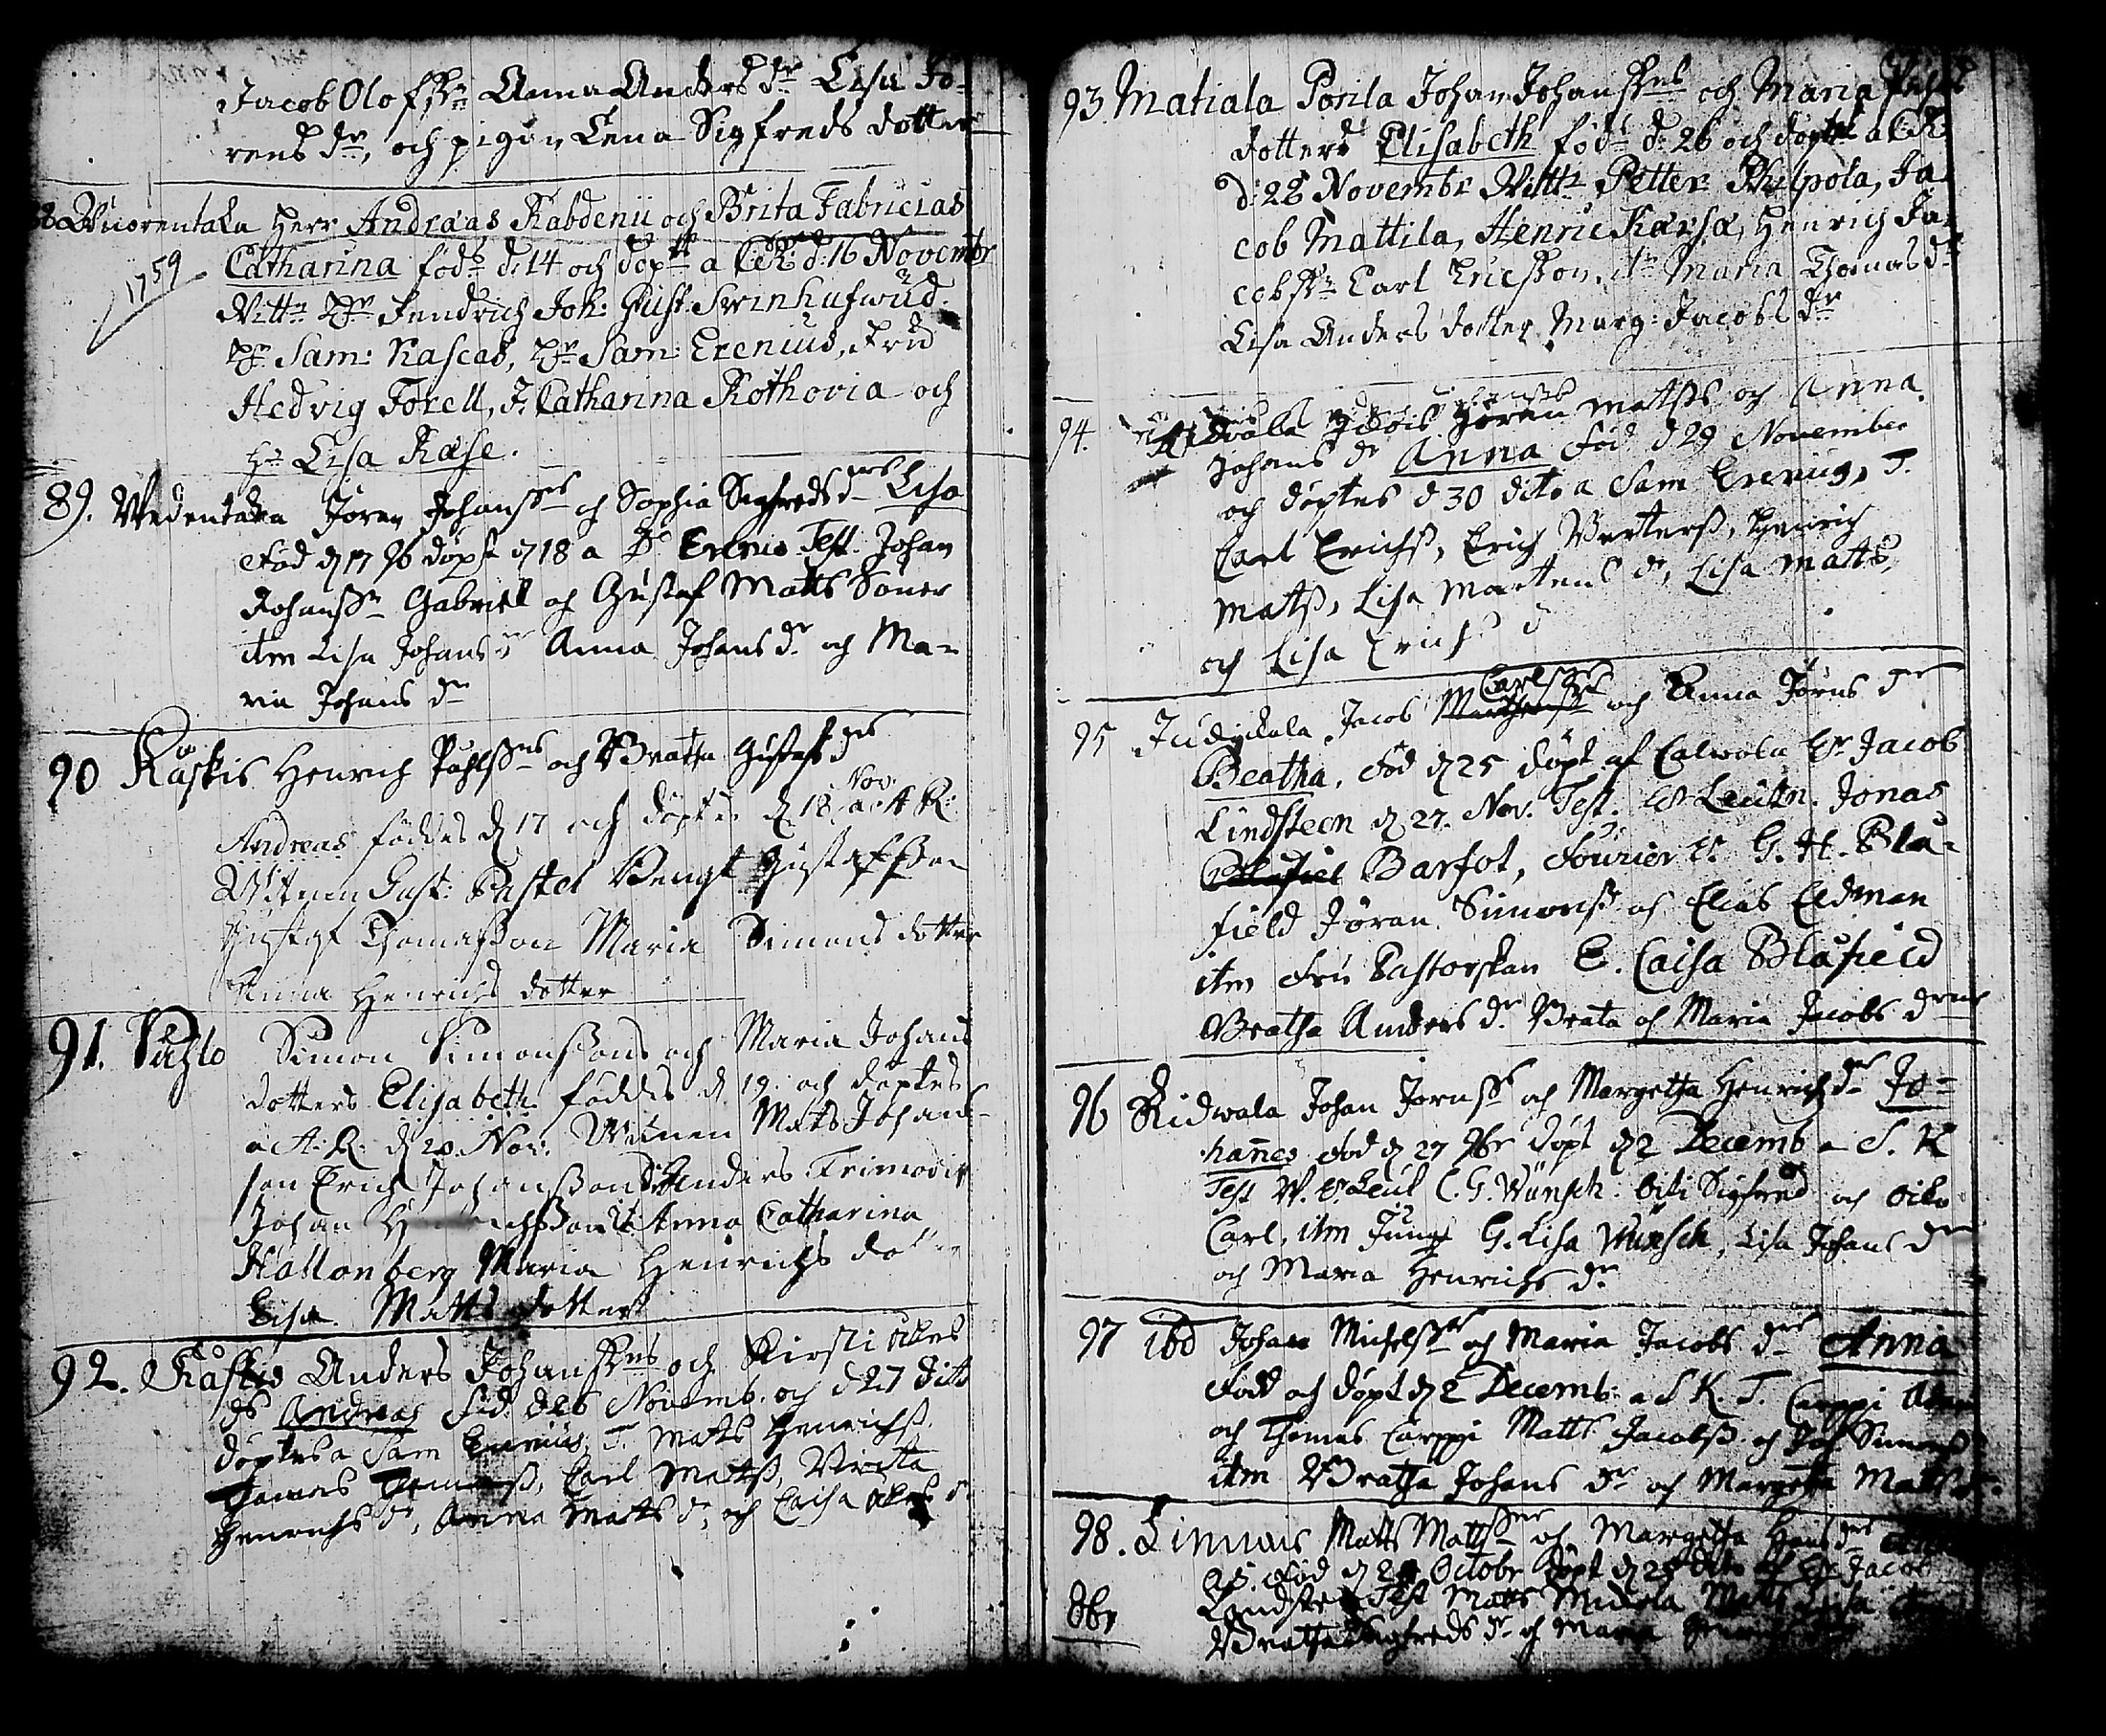 Jacob Olofss:n Anna Anders d:r Lisa Jö-
rens d:r, och pigan Lena Sigfreds dotter
88 Wuorentaka Herr Andræas Rabdenii och Brita Fabricias
1759
Catharina föds d: 14 och döptes a C:R: d: 16 Novembr
Vittn H:r Fendrich Joh: Gust. Svinhufwud.
H:r Sam: Kascas, H:r Sam: Erenius, Fru
Hedvig Forell, J. Catharina Rothovia och
H:u Lisa Ræse.
89. Wedentaka Jören Johanss:ns och Sophia Sigfreds d:rs Lisa
Född d 17 9b döpt d 18 a D. Erenio Test. Johan
Johanss:n Gabriel och Gustaf Matts Söner
item Lisa Johans d:r Anna Johans d:r och Ma-
ria Johans d:r
90 Råskis Henrich Påhlss:ns och Beatha Gustafs d:rs
Andreas föddes d 17 och döptes d 18 Nov: a A R:
Witnen Gust: Pastel Bengt Gustafsson
Gustaf Thomasson Maria Simons dotter
Anna Henrichs dotter
91. Puhlo Simon Simonssons och Maria Johans
dotters Elisabeth föddes d 19. och döptes
a A: R: d 20. Nov: Witnen Mats Johans-
son Erich Johansson Anders Frimodig
Johan Anna Catharina
Hallonberg Maria Henrichs dotter
Lisa Matts dotter
92. Råskis Anders Johanss:ns och Kirsti
ds Andreas Föd d 26 Novemb. och d 27 dito
döptes a Sam Erenius, T. Mats Henrichss.
Thomas Thomass, Carl Matss, Birita
Henrichs d:r, Anna Matts d:r och Caisa
93 Matiala Pörila Johan Johanss:ns och Maria
dotters Elisabeth föd:s d: 26 och döptes a C:R:
d: 28 Novembr Vittn Petter Philpola, Ja-
cob Mattila, Henric Karsa, Henrich Ja-
cobss:n Carl Ericsson, it:m Maria Thomas d:r
Lisa Anders dotter, Marg: Jacobs d:r
94. Jören Matss och Anna
Johans d:r Anna Föd d 29 November
och döptes d 30 dito a Sam Erenius, T.
Carl Erichss, Erich Berterss, Henrich
Matss, Lisa Mårtens d:r, Lisa Matts,
och Lisa Erichs d
95 Judickala Jacob Carlss:ns och Anna Jörns d:r
Beatha, Föd d 25 döpt af Calwola H:r Jacob
Lindsteen d 27. Nov. Test. H:r Leutn. Jonas
Barfot, Fourier H:r G. H. Blå-
field Jöran Simonss och Elias Eldman
item Fru Pastorskan E. Caisa Blåfield
Beatha Anders d:r Beata och Maria Jacobs d:rar
96 Ridwala Johan Jörnss:ns och Margetha Henrichs d:r Jo-
hannes Född d 27 9br döpt d 2 Decemb a S. K
Test W. H:r Leut C. G. Wünsch. Oiti Sigfred och Oiti
Carl, item Jungf G. Lisa Wünsch, Lisa Johans d:r
och Maria Henrichs d:r
97 ibd Johan Michelss:ns och Maria Jacobs d:rs Anna
Född och döpt d 2 Decemb: a S K T. Carppi Adam
och Thomas Carppi Matts Jacobss och Joh Simonss
item Beatha Johans d:r och Margetha Matts d:r
98. Linnais Matts Mattss:ns och Margetha Hans d:rs
Föd d Octobr döpt d dito af H:r Jacob
8br
Lindsten Test Matts Mickola Matts
Beatha Sigfreds d:r och Maria